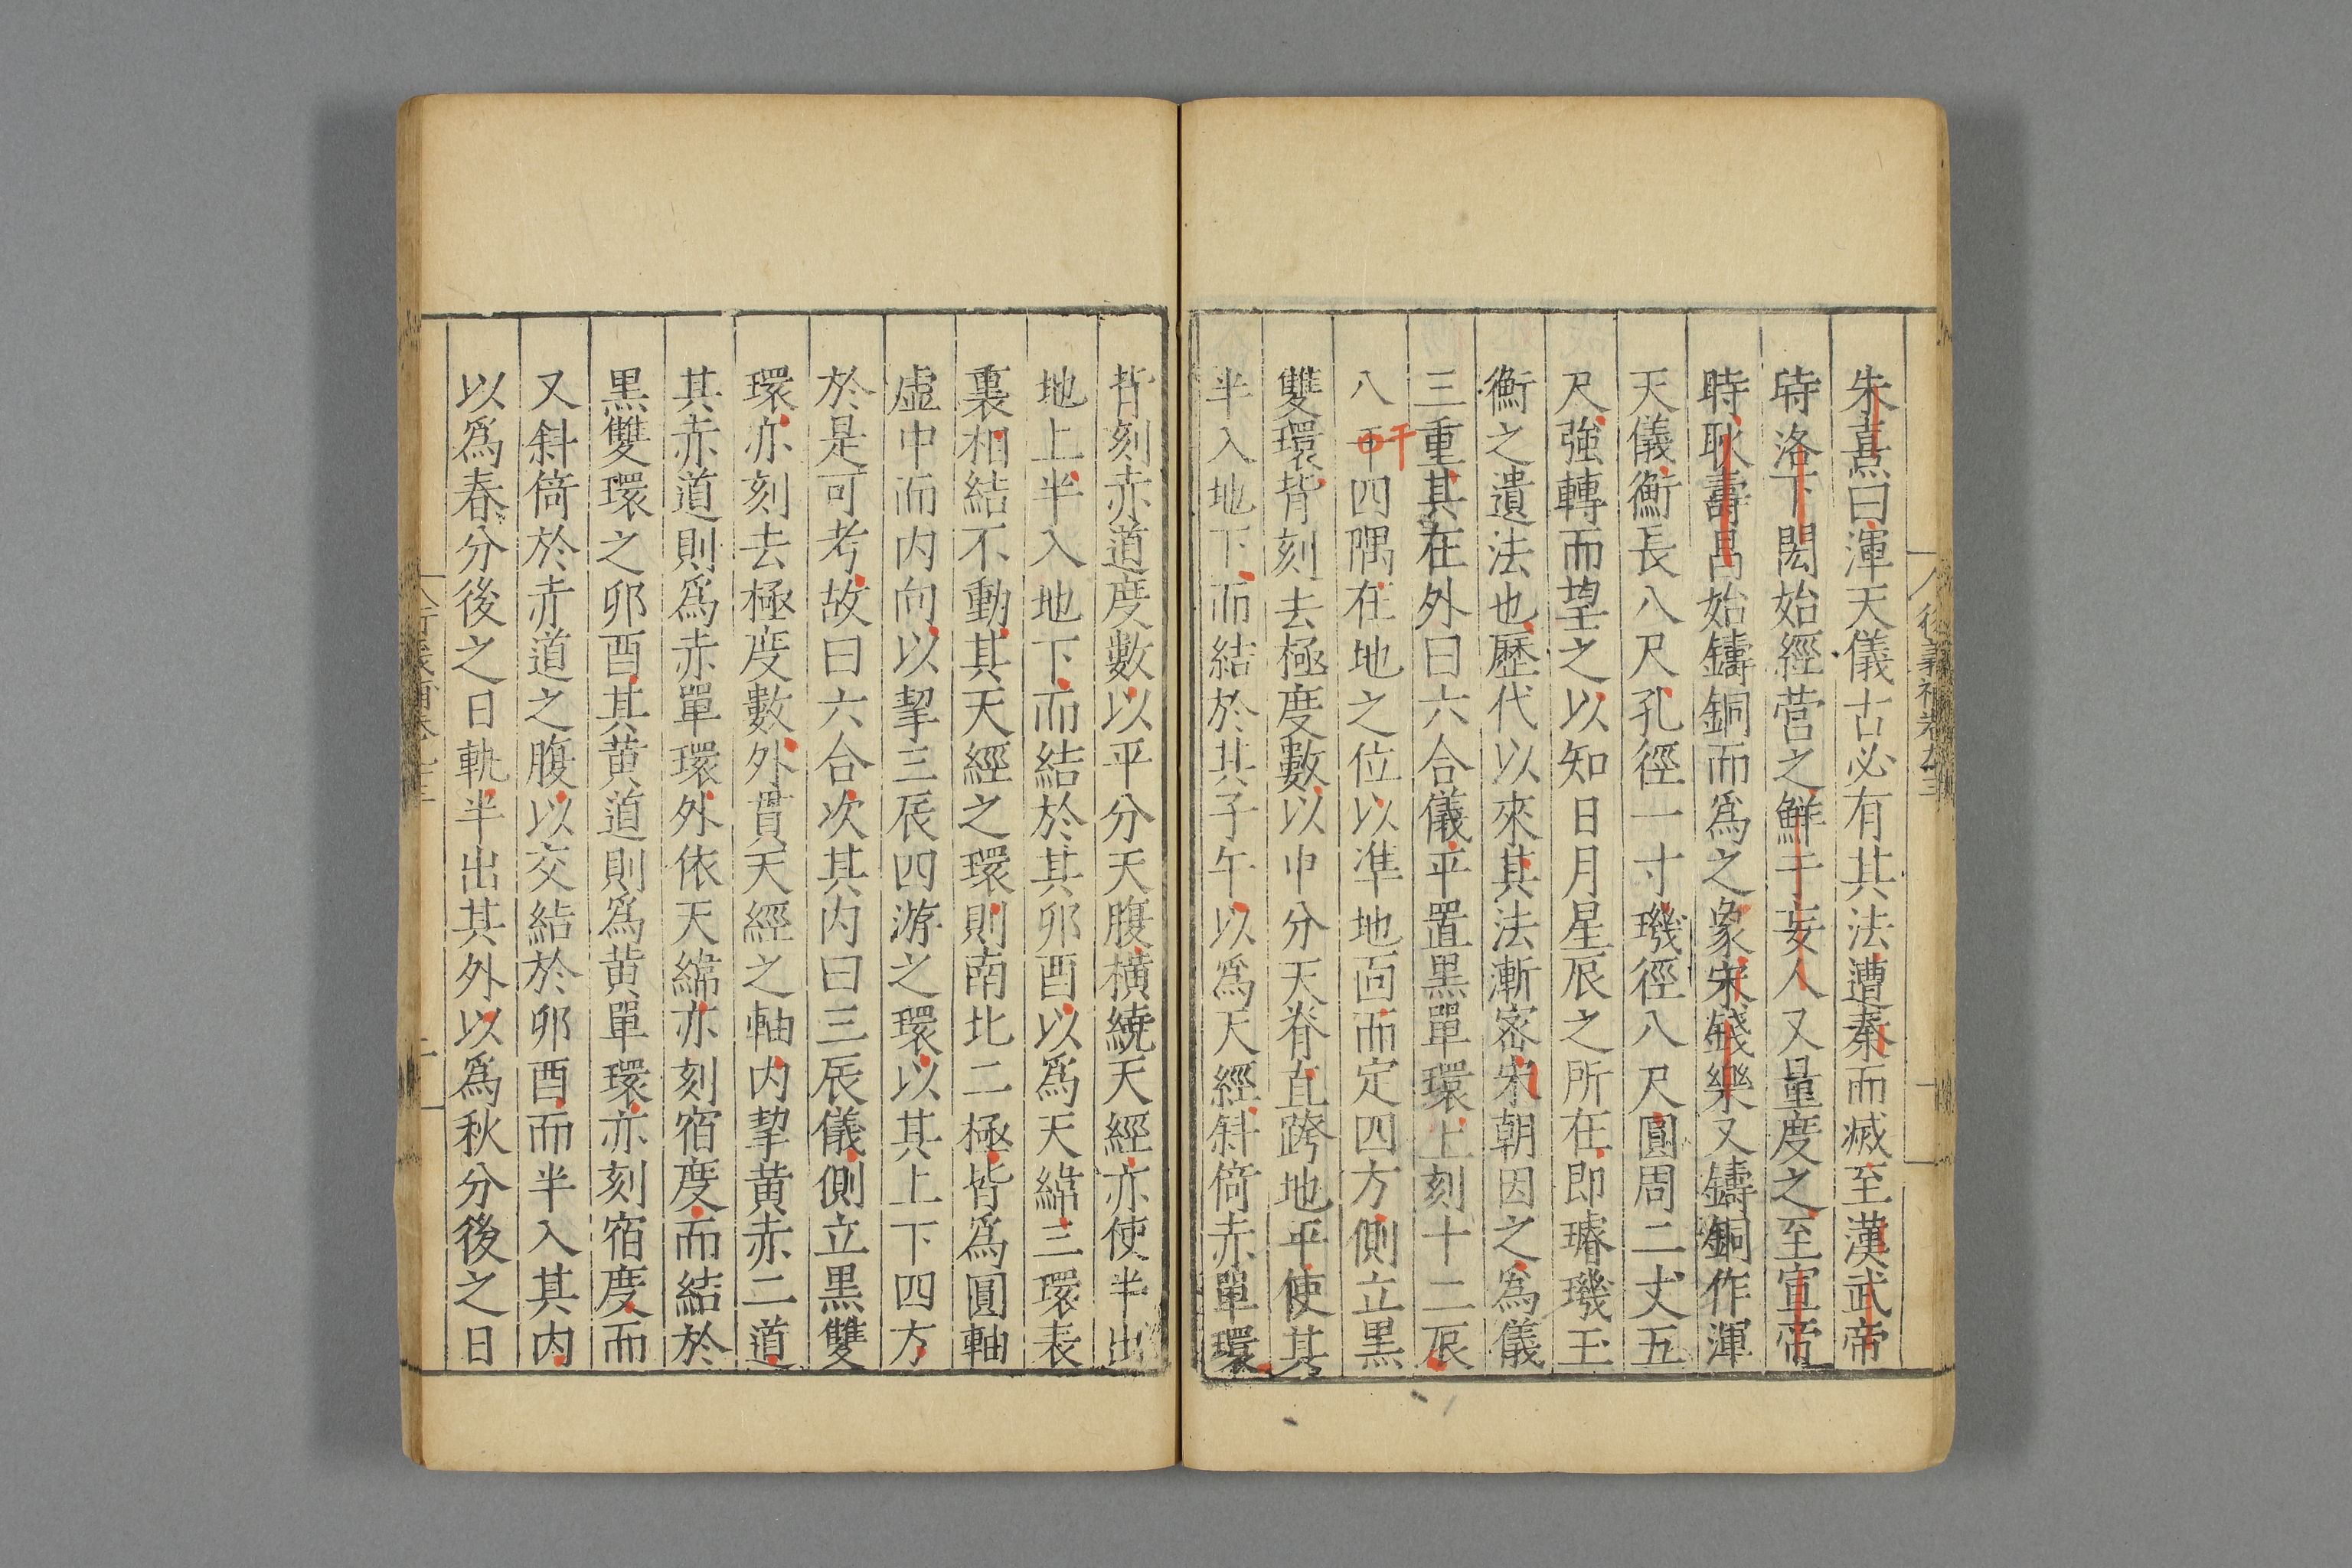 朱熹曰渾天儀古必有其法遭秦而滅至漢武帝
時洛下閎始經營之鮮于妄人又量度之至宣帝
時耿壽昌始鑄銅而爲之象宋錢樂又鑄銅作渾
天儀衡長八尺孔徑一寸璣徑八尺圓周二丈五
尺強轉而望之以知日月星辰之所在即璿璣玉
衡之遺法也歷代以來其法漸密宋朝因之為儀
三重其在外曰六合儀平置黑單環上刻十二辰
八干四隅在地之位以準地面而定四方側立黑
雙環背刻去極度數以中分天脊直跨地平使其
半入地下而結於其子午以爲天經斜倚赤單環
背刻赤道度數以平分天腹橫繞天經亦使半出
地上半入地下而結於其卯酉以爲天緯三環表
裏相結不動其天經之環則南北二極皆爲圓軸
虛中而内向以挈三辰四游之環以其上下四方
於是可考故曰六合次其内曰三辰儀側立黑雙
環亦刻去極度數外貫天經之軸内挈黄赤二道
其赤道則爲赤單環外依天緯亦刻宿度而結於
黑雙環之卯酉其黄道則爲黄單環亦刻宿度而
又斜倚於赤道之腹以交結於卯酉而半入其内
以爲春分後之日軌半出其外以爲秋分後之日